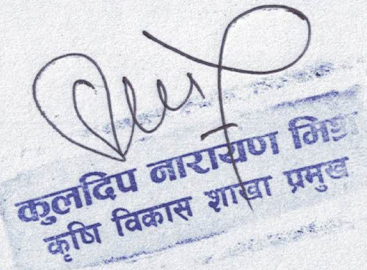 कुलदिप नारायण मिश्र
कृषि विकास शाखा प्रमुख